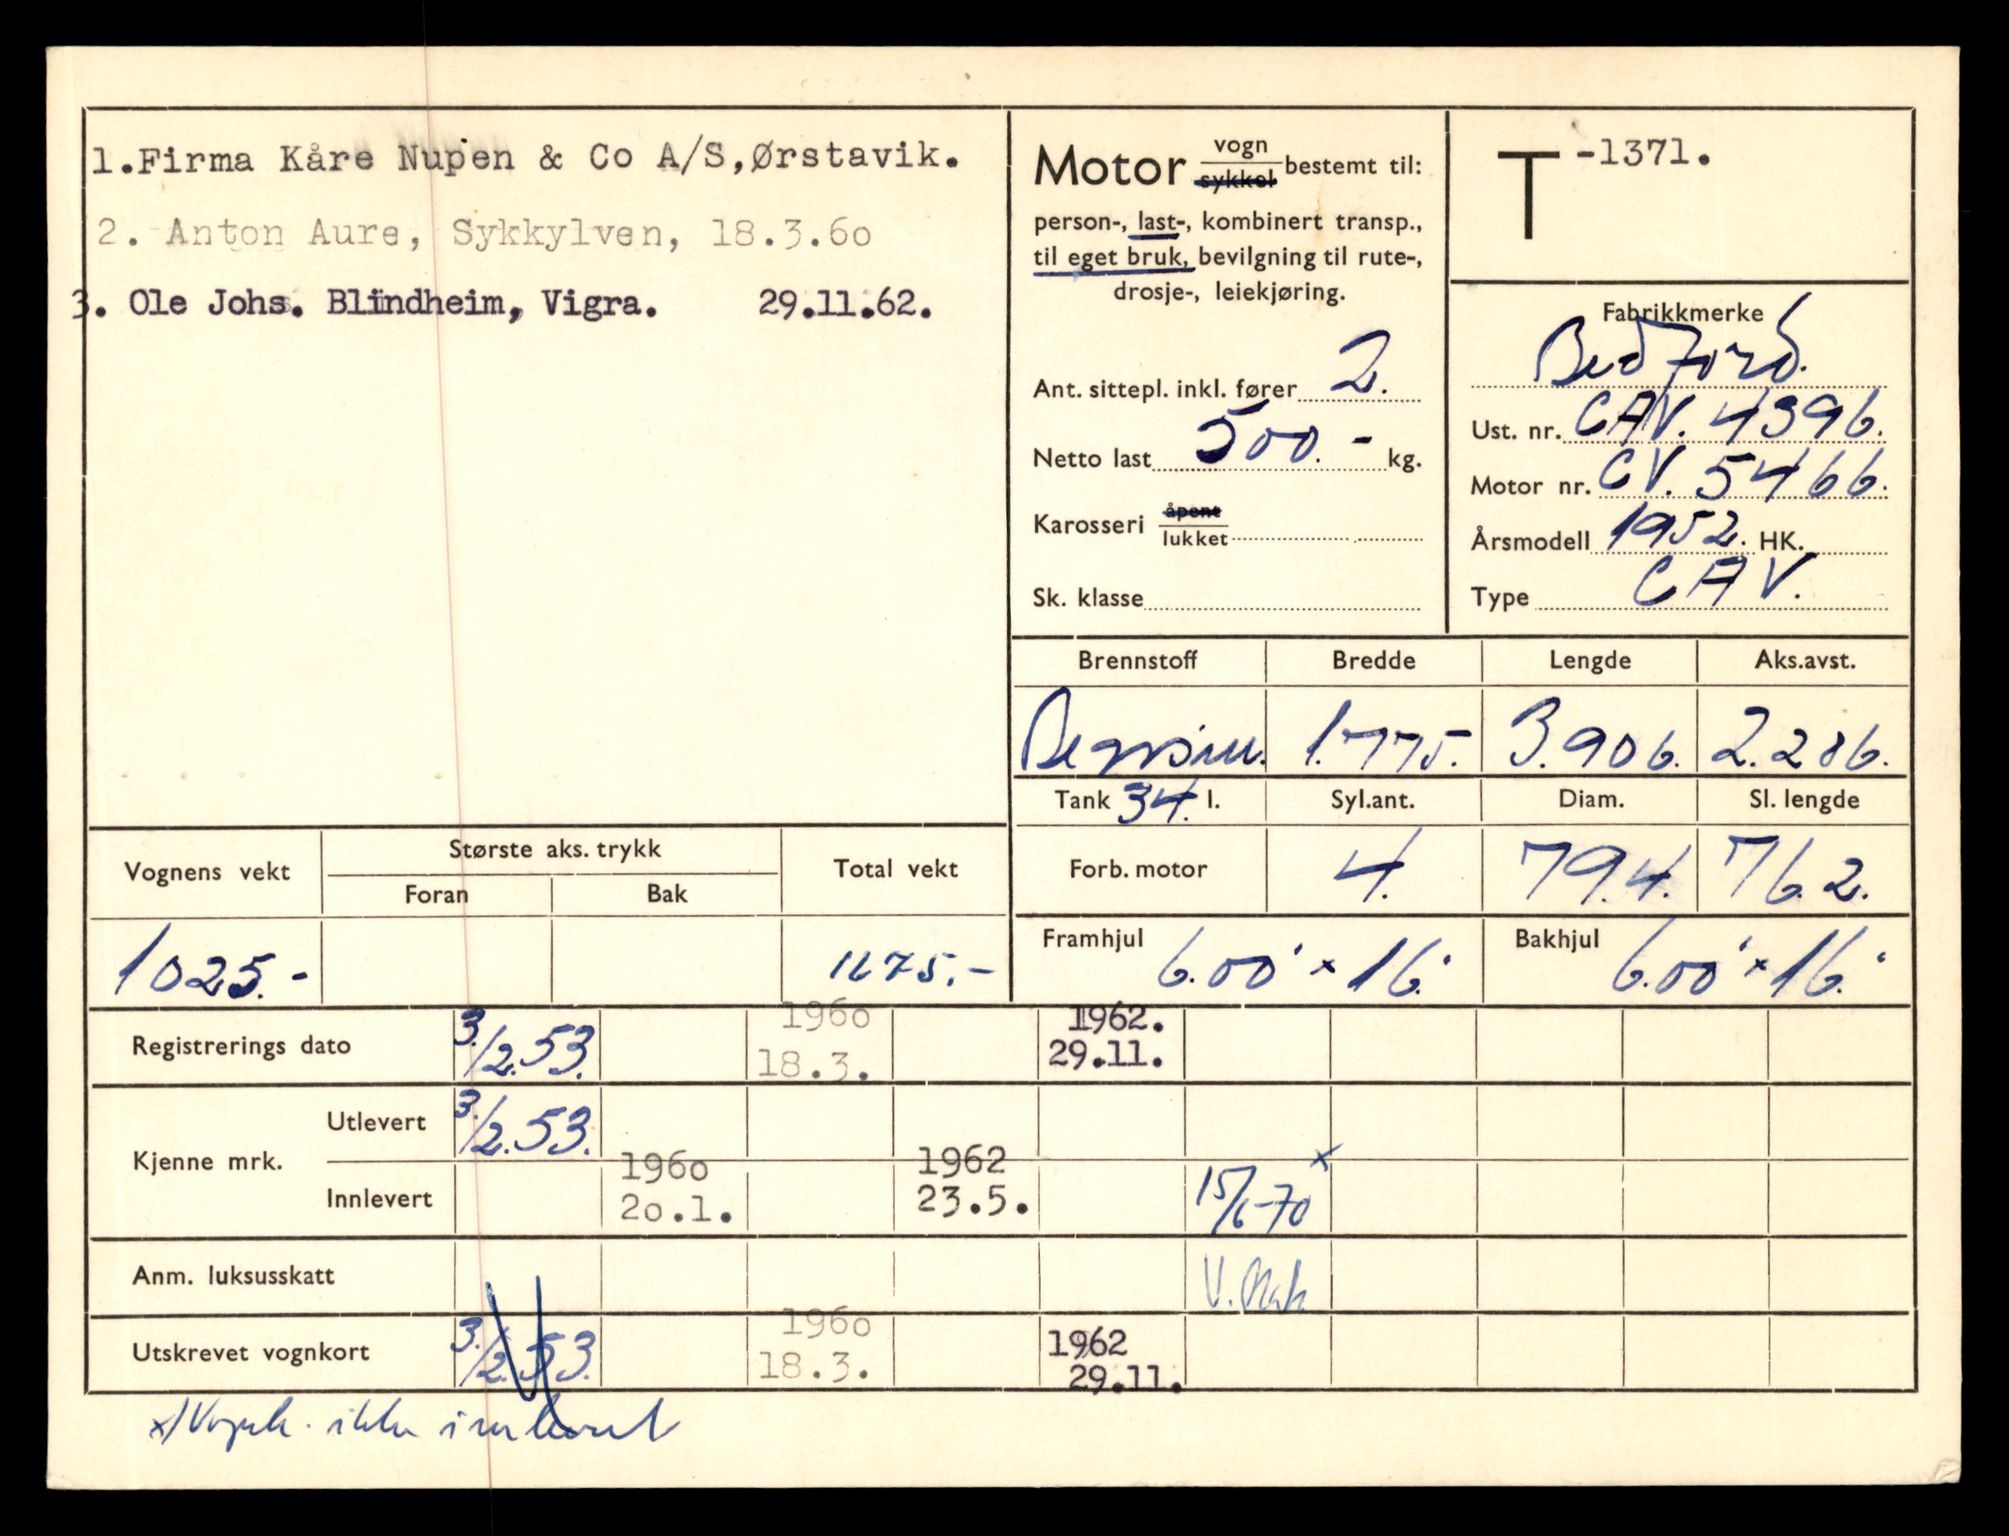 1.Firma Kåre Nupen & Co A/S,Ørstavik.
2. Anton Aure, Sykkylven, 18.3.60
3. Ole Johs. Blindheim, Vigra. 29.11.62.
Motor vogn
sykkel bestemt til:
person-, last-, kombinert transp.,
til eget bruk, bevilgning til rute-,
drosje-, leiekjøring.
Ant. sittepl. inkl. fører 2.
Netto last 500.- kg.
Karosseri åpent
lukket
Sk. klasse
T -1371.
Fabrikkmerke
Bedford.
Ust. nr. CAV. 4396.
Motor nr. CV. 5466.
Årsmodell 1952. HK.
Type CAV.
Brennstoff Bredde Lengde Aks.avst.
Bensin. 1.775. 3.906. 2.286.
Tank 34. l. Syl.ant. Diam. Sl. lengde
Forb. motor 4. 79.4. 76.2.
Framhjul 6.00 x 16. Bakhjul 6.00 x 16.
Vognens vekt Største aks. trykk Total vekt
Foran Bak
1025.- 1675.-
Registrerings dato 3./2.53. 1960 18.3. 1962. 29.11.
Kjenne mrk. Utlevert 3./2.53.
Innlevert 1960 20.1. 1962 23.5. 15/6-70 x
Anm. luksusskatt V.
Utskrevet vognkort 3./2.53. 1960 18.3. 1962 29.11.
x) Vognk. ikke innlevert